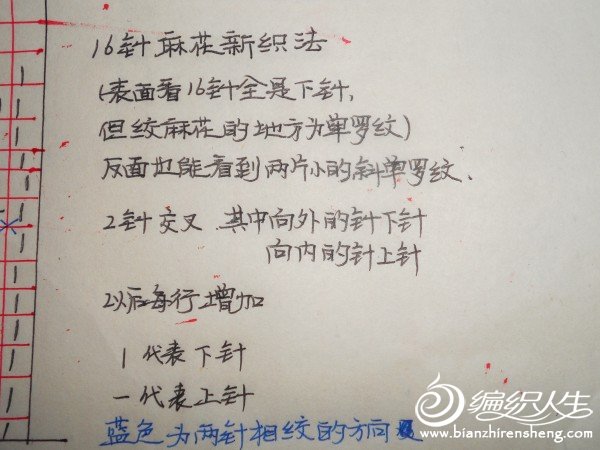 16针麻花新织法
(表面看16针全是下针,
但绞麻花的地方为单罗纹)
反面也能看到两片小的斜单罗纹、
2针交叉 其中向外的针下针
向内的针上针
2以后每行增加
1 代表下针
一代表上针
蓝色为两针相绞的方向
编织人生
www.bianzhirensheng.com